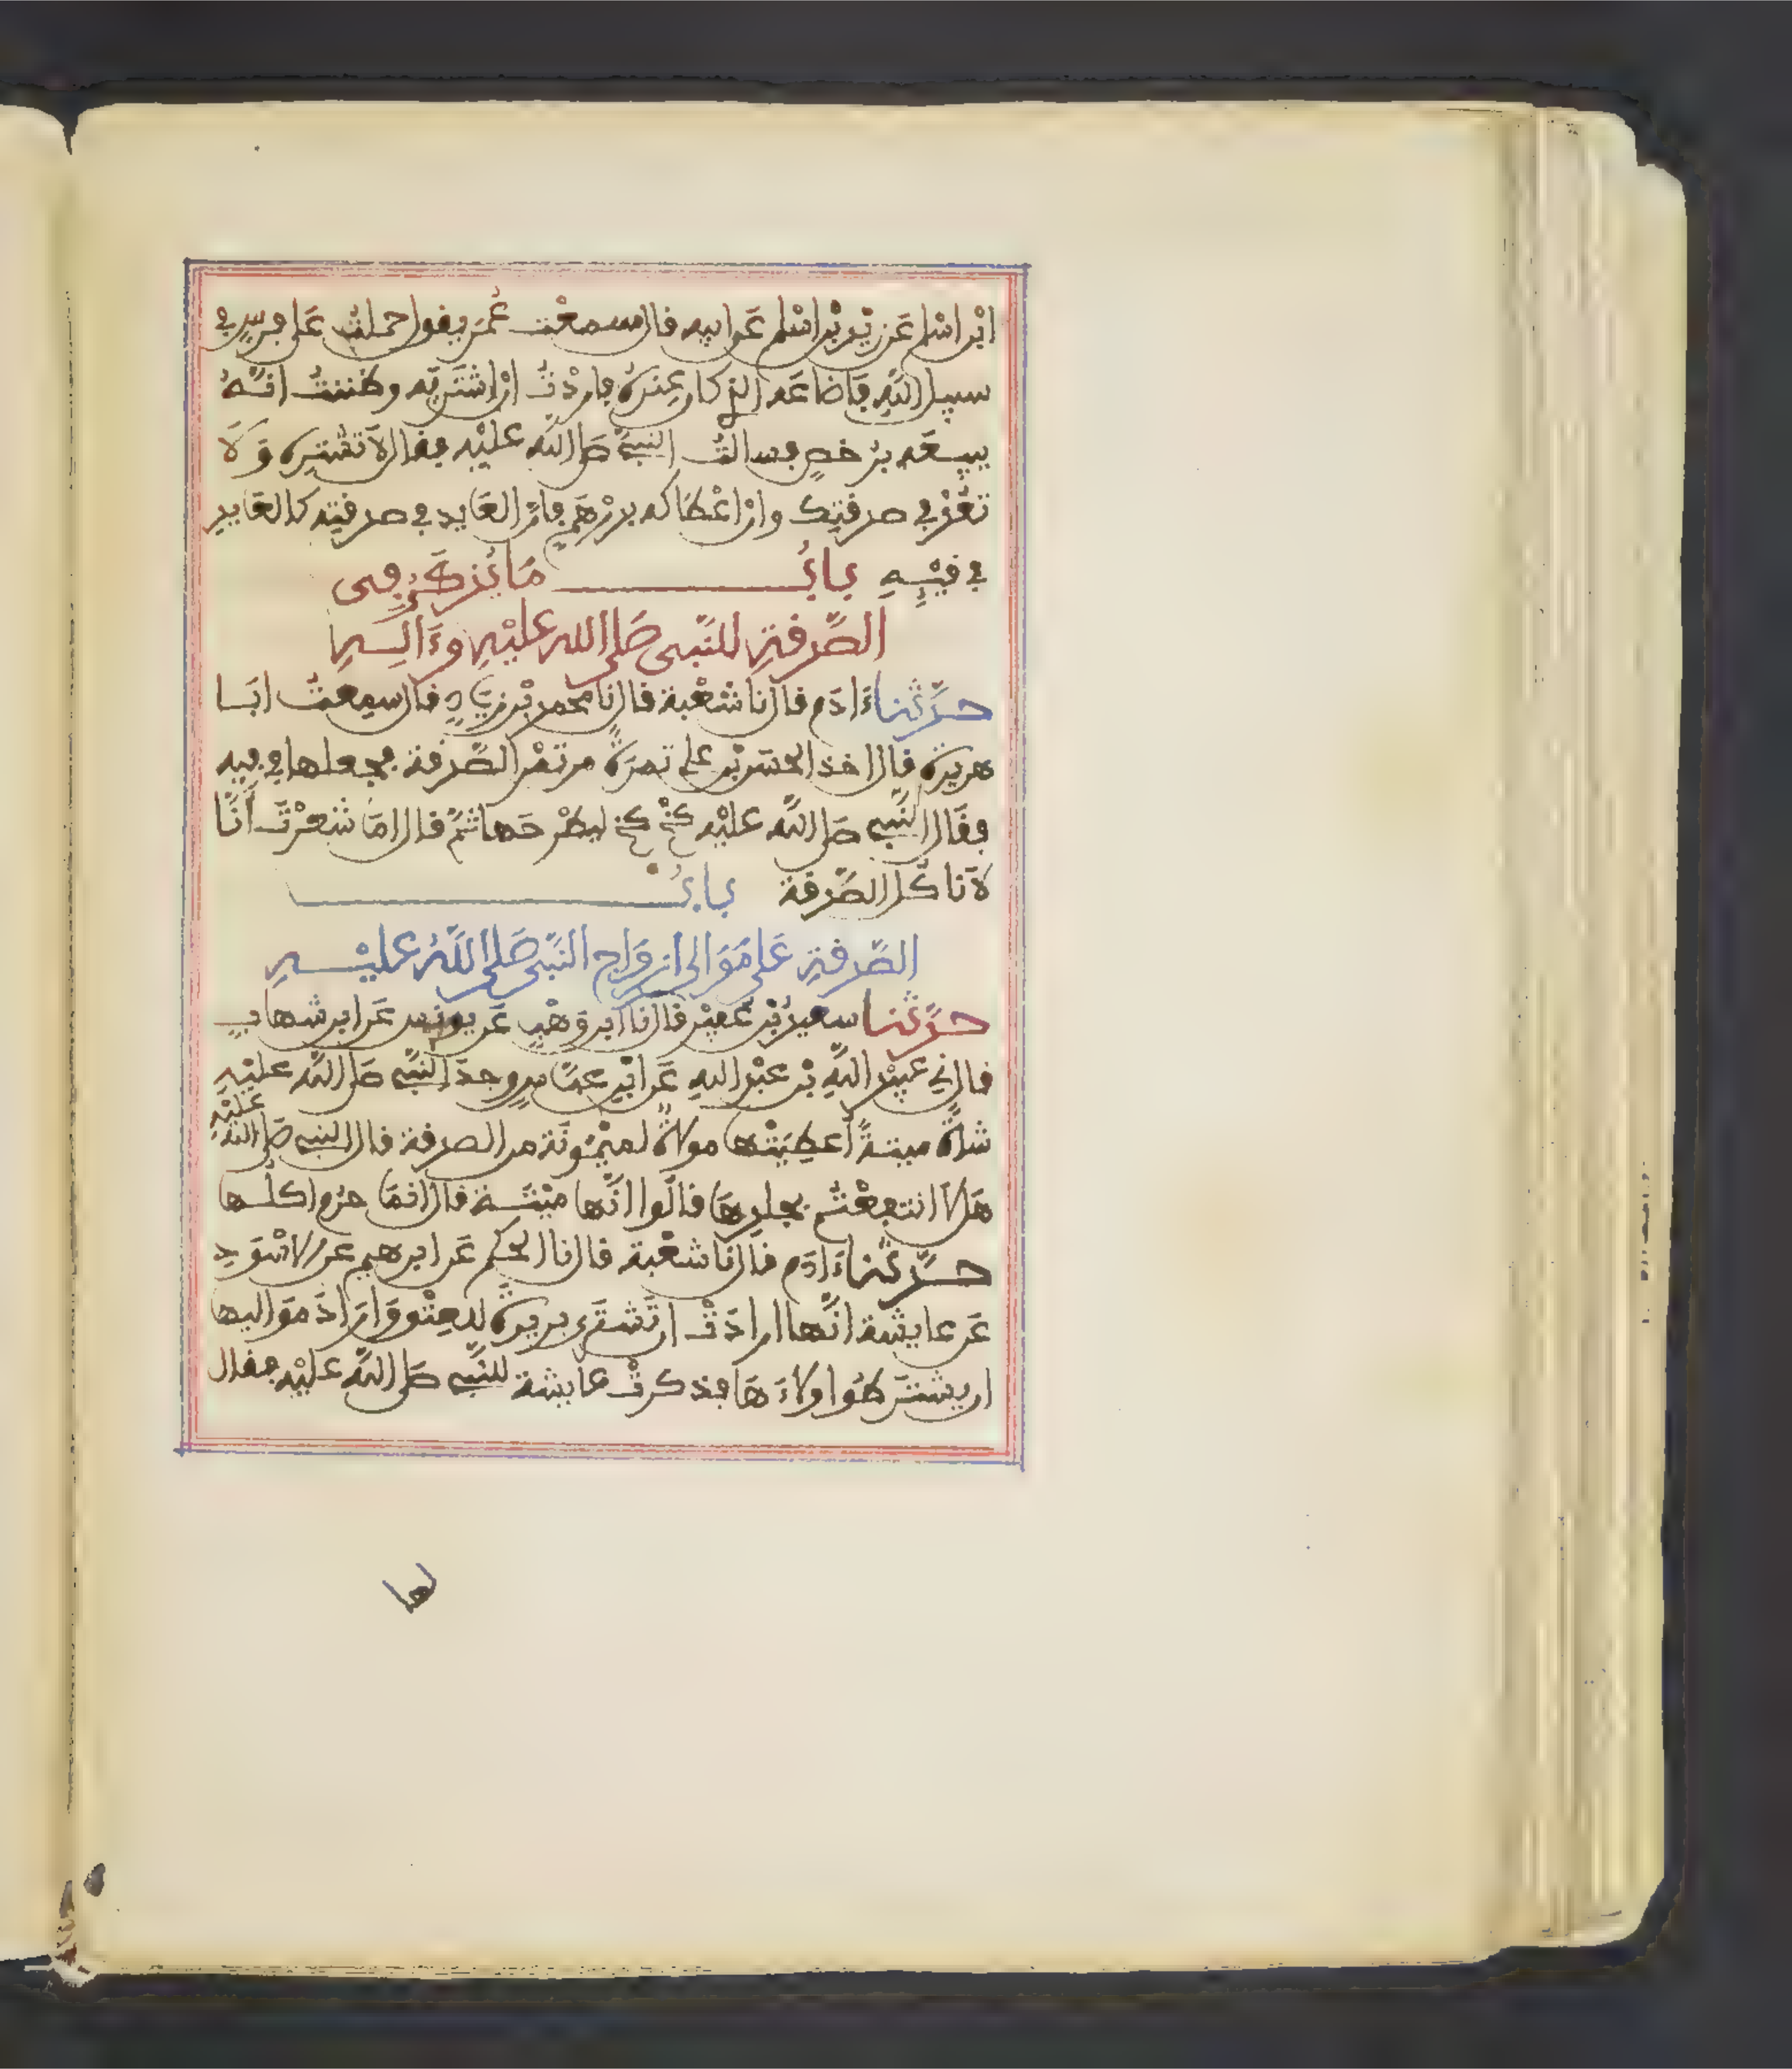 ابْن اسْلم عَن زيْد بْن اسْلم عَن ابيه قال سمعْت عُمَر يقول حملتُ عَلى فرسٍ في
سبيل اللهِ فَاضَاعَه الذي كان عِندهُ فاردْتُ انْ اشتَريَه وظننتُ انّهُ
يبيعَه برُخصٍ فسالتُ النبيَّ صَلى اللّه عليْه فقال لَا تَشترِه وَلَا
تعُدْ في صدقتِك وانْ اعْطاكه بدِرْهَمٍ فانّ العَايد في صدقتِه كالعَايد
في قيْئِهِ بابُ مَا يُذكَرُ في
الصَّدقةِ للنَّبي صَلى الله عليْهِ وءَالِهِ
حدَّثنا ءَادَم قال نا شعْبة قال نا محمد بْن زيَادٍ قال سمِعتُ ابَا
هريرة قال اخذ الحسَن بْن علي تمرَةً من تمْر الصَّدقة فجعلها في فيه
فقَال النَّبي صَلى اللّه عليْه كخْ كخْ ليطْرحَها ثمَّ قال امَا شعرْتَ أنَّا
لَا ناكُل الصَّدقة بابُ
الصَّدقةِ عَلى مَوَالى ازوَاج النَّبي صَلى اللَّهُ عليْهِ
حدَّثنا سعيدُ بْن عُفيْر قال نا ابن وَهْبٍ عَن يونس عَن ابن شهابٍ
قال ني عبيْد اللّهِ بْن عبْد اللهِ عَن ابْن عبَّاسٍ وجدَ النَّبي صَلى اللّه عليْهِ
شاةً ميتةً أعطِيَتْها مولاةٌ لميْمُونَة من الصدقة قال النبي صَلى اللّه عليْهِ
هَلَّا انتفعْتُم بجلدِهَا قالُوا انَّها ميْتَة قال انمَا حرُم اكلُها
حدَّثنا ءَادَم قال نا شعْبة قال نا الحكَم عَن ابرهيم عَن الاسْوَدِ
عَن عايشة انَّها ارادَتْ ان تَشتَري بريرةَ للعِتْق وَارَادَ مَوَاليها
ان يشتَرطُوا ولاءَهَا فذكرتْ عايشة للنَّبي صَلى اللّه عليْه فقال
لها